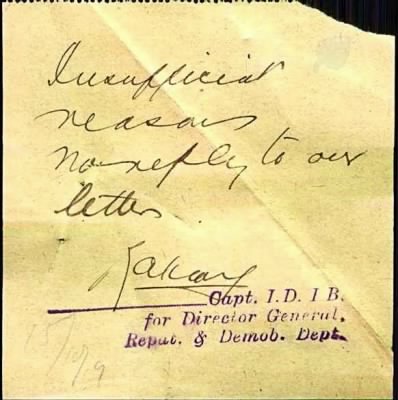 Insufficient
reasons
No reply to our
letter
Capt. I.D. I B.
for Director General.
Repat. & Demob. Dept.